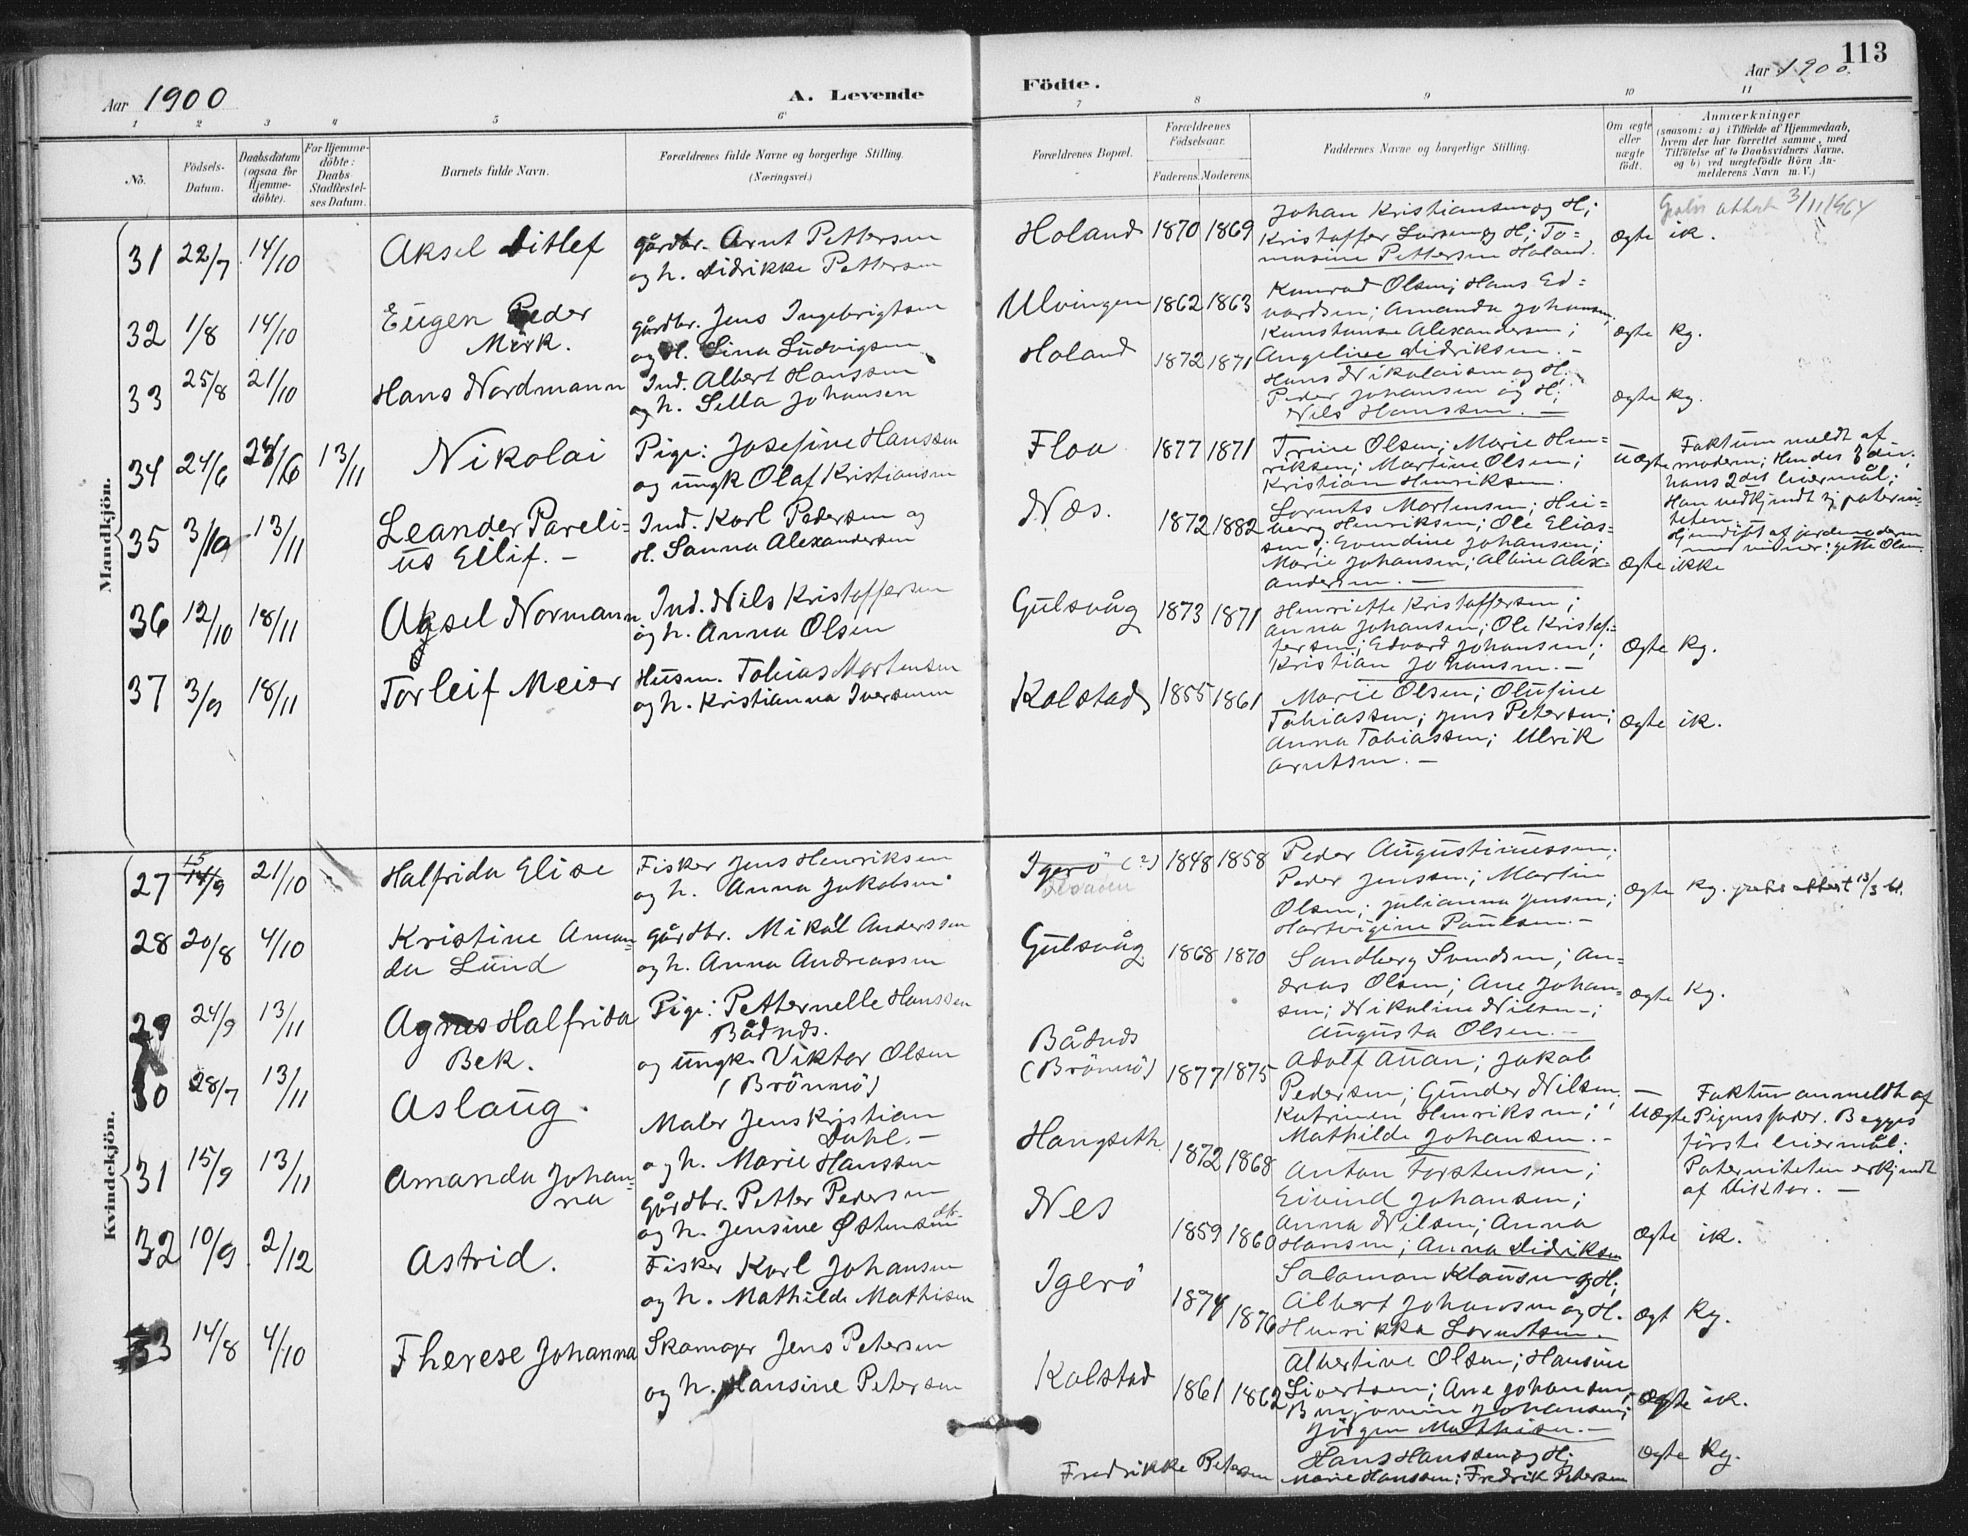 113
Aar 1900
A. Levende
Födte.
Aar 1900.
1 2 3 4 5 6 7 8 9 10 11
No.
Födsels-
Datum.
Daabsdatum
(ogsaa för
Hjemme-
döbte).
For Hjemme-
döbte:
Daabs
Stadfæstel-
ses Datum.
Barnets fulde Navn.
Forældrenes fulde Navne og borgerlige Stilling.
(Næringsvei.)
Forældrenes Bopæl.
Forældrenes
Födselsaar.
Faderens. Moderens.
Faddernes Navne og borgerlige Stilling.
Om ægte
eller
uægte
födt.
Anmærkninger
(saasom: a) i Tilfælde af Hjemmedaab,
hvem der har forrettet samme, med
Tilföielse af to Daabsvidners Navne,
og b) ved uegtefödte Börn An-
melderens Navn m. V.)
Mandkjön.
31 22/7 14/10 Aksel Ditlef
gårdbr. Arnt Pettersen
og h. Didrikke Pettersen
Holand 1870 1869
Johan Kristiansen og H;
Kristoffer Larsen og H; To=
masine Pettersen Holand.
ægte ik.
attest 3/11 1964
32 1/8 14/10 Eugen Peder
Mörk.
gårdbr. Jens Ingebrigtsen
og H. Lina Ludvigsen
Ulvingen 1862 1863
Konrad Olsen; Hans Ed=
vardsen; Amanda Johansen;
Konstanse Alexandersen;
Angeline Didriksen. -
ægte kg.
33 25/8 21/10 Hans Nordmann
Ind. Albert Hanssen
og h. Sella Johansen
Holand 1872 1871
Hans Nikolaisen og H;
Peder Johansen og H;
Nils Hanssen. -
ægte kg.
34 24/6 13/11 Nikolai
Pige: Josefine Hanssen
og ungk Olaf Kristiansen
Floa 1877 1871
Trine Olsen; Marie Hen=
riksen; Martine Olsen;
Kristian Henriksen.
uægte
Faktum meldt af
modern; Hendes 3die,
hans 2det leiermål;
Han vedkjendt sig paterni=
teten.
Hjemdöbt af jordemoderen
35 3/10 13/11 Leander Pareli=
us Eilif. -
Ind. Karl Pedersen og
H. Sanna Alexandersen
Næs. 1872 1882
Lorents Mortensen; Hei=
berg Henriksen; Ole Elias=
sen; Evendine Johansen;
Marie Johansen; Albine Alex=
andersen. -
ægte ikke
36 12/10 18/11 Aksel Normann
Ind. Nils Kristoffersen
og h. Anna Olsen
Gulsvåg 1873 1871
Henriette Kristoffersen;
Anna Johansen; Ole Kristof=
fersen; Edvard Johansen;
Kristian Johansen. -
Ægte kg.
37 3/9 18/11 Torleif Meier
Husm. Tobias Mortensen
og h. Kristianna Iversen
Kolstad 1855 1861
Marie Olsen; Olufine
Tobiassen; Jens Petersen;
Anna Tobiassen; Ulrik
Arntsen. -
ægte ik.
Kvindekjön.
27 15/9 21/10 Halfrida Elise
Fisker Jens Henriksen
og h. Anna Jakobsen
Igerö (?) 1848 1858
Peder Augustinussen;
Peder Jenssen; Martin
Olsen; Julianna Jensen;
Hartvigine Paulsen. -
ægte kg. attest 13/3 61.
28 20/8 4/10 Kristine Aman=
da Lund
gårdbr. Mikal Anderssen
og h. Anna Andreassen
Gulsvåg 1868 1870
Sandberg Svendsen; An=
dreas Olsen; Ane Johan=
sen; Nikoline Nilsen;
Augusta Olsen. -
ægte kg.
29 24/9 13/11 Agnes Halfrida
Bek.
Pige: Petternelle Hanssen
Bådnds.
og ungk. Viktor Olsen
(Brönnö)
Bådnds
(Brönnö) 1877 1875
Adolf Auan; Jakob
Pedersen; Gunder Nilsen
Katrinen Henriksen;
Mathilde Johansen. -
uægte
Faktum anmeldt af
Pigens fader. Begges
förste leiermål.
Paterniteten erkjendt
af Viktor. -
30 28/7 13/11 Aslaug.
Maler Jens Kristian
Dahl. -
og h. Marie Hanssen
Hangseth 1872 1868
Anton Torstensen;
Eivind Johansen;
Anna Nilsen; Anna
Hansen; Anna Didriksen
ægte ik.
31 15/9 13/11 Amanda Johan=
na
gårdbr. Petter Pedersen
og h. Jensine Östensen
Nes 1859 1860
Salamon Klausen og H;
Albert Johansen og H.
Henrikka Lorentsen. -
ægt kg.
32 10/9 2/12 Astrid.
Fisker Karl Johansen
og h. Mathilde Mathisen
Igerö 1874 1876
Albertine Olsen; Hansine
Sivertsen; Ane Johansen;
Benjamin Johansen;
Jörgen Mathisen. -
ægte ik.
33 14/8 4/10 Therese Johanna
Skomager Jens Petersen
og h. Hansine Petersen
Kolstad 1861 1862
Hans Hanssen og H;
Fredrikke Petersen Marie Hanssen; Fredrik Petersen
ægte kg.